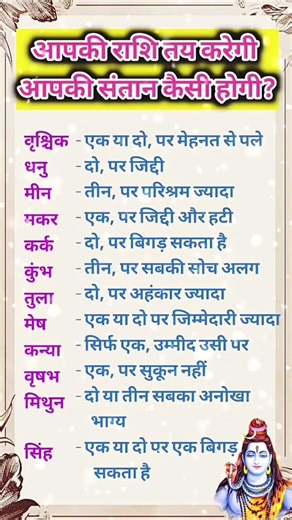 आपकी राशि तय करेगी
आपकी संतान कैसी होगी?
वृश्चिक - एक या दो, पर मेहनत से पले
धनु - दो, पर जिद्दी
मीन - तीन, पर परिश्रम ज्यादा
मकर - एक, पर जिद्दी और हटी
कर्क - दो, पर बिगड़ सकता है
कुंभ - तीन, पर सबकी सोच अलग
तुला - दो, पर अहंकार ज्यादा
मेष - एक या दो पर जिम्मेदारी ज्यादा
कन्या - सिर्फ एक, उम्मीद उसी पर
वृषभ - एक, पर सुकून नहीं
मिथुन - दो या तीन सबका अनोखा
भाग्य
सिंह - एक या दो पर एक बिगड़
सकता है